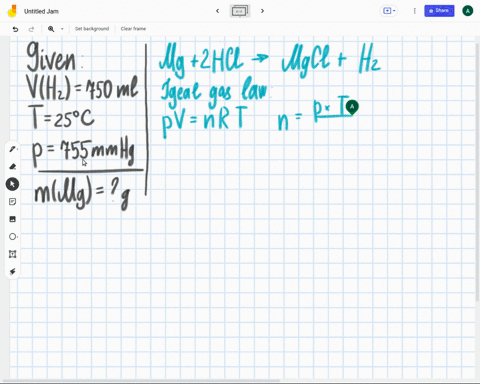 Untitled Jam
Share
A
Set background
Clear frame
Given
V(H₂) = 750 ml
T = 25°C
p = 755 mmHg
m(Mg) = ? g
Mg + 2HCl → MgCl + H₂
Igeal gas law
pV = nRT
n = p× T
A